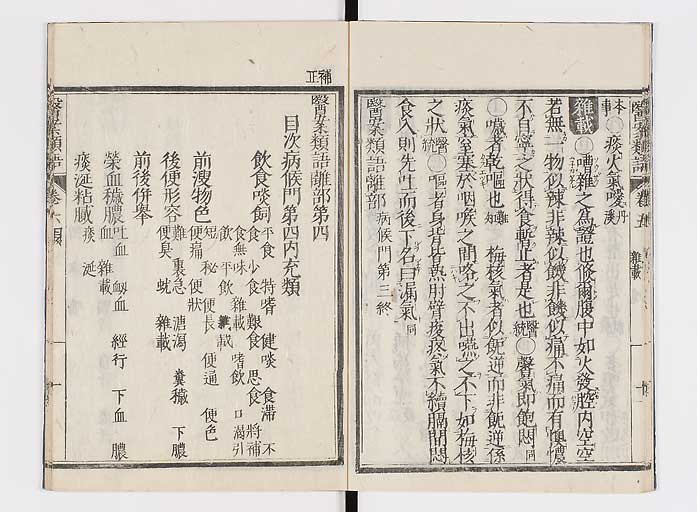 醫案類語 卷五 雜載 十
本事 痰火氣噯 丹溪
雜載 嘈雜之為證也倏爾腹中如火發腔内空空
若無一物似辣非辣似饑非饑似痛不痛而有懊憹
不自寧之狀得食暫止者是也 醫統 醫氣即飽悶 同
噦者乾嘔也 梅核氣者似飥逆而非飥逆係
痰氣窒塞於咽喉之間咯之不出嚥之不下如梅核
之狀 醫統 嘔者身背皆熱肘臂疼痰氣不續膈間悶
食入則先吐而後下名曰漏氣 同
醫案類語離部 病候門第三終
補正
醫案類語離部第四
目次病候門第四内充類
飲食啖飼 平食 特嗜 健啖 食滯 不食 食少 食艱 食思 食將補 食無味 食雜載 嗜飲 口渴引飲 不飲
前溲物色 短 秘 便長 便通 便色 便痛 便狀
後便形容 難 裏急 溏瀉 糞穢 下膿 便臭 蚘 雜載
前後併舉
榮血穢膿 吐血 衂血 經行 下血 膿血 雜載
痰涎粘膩 痰 涎
醫案類語 卷六目 一